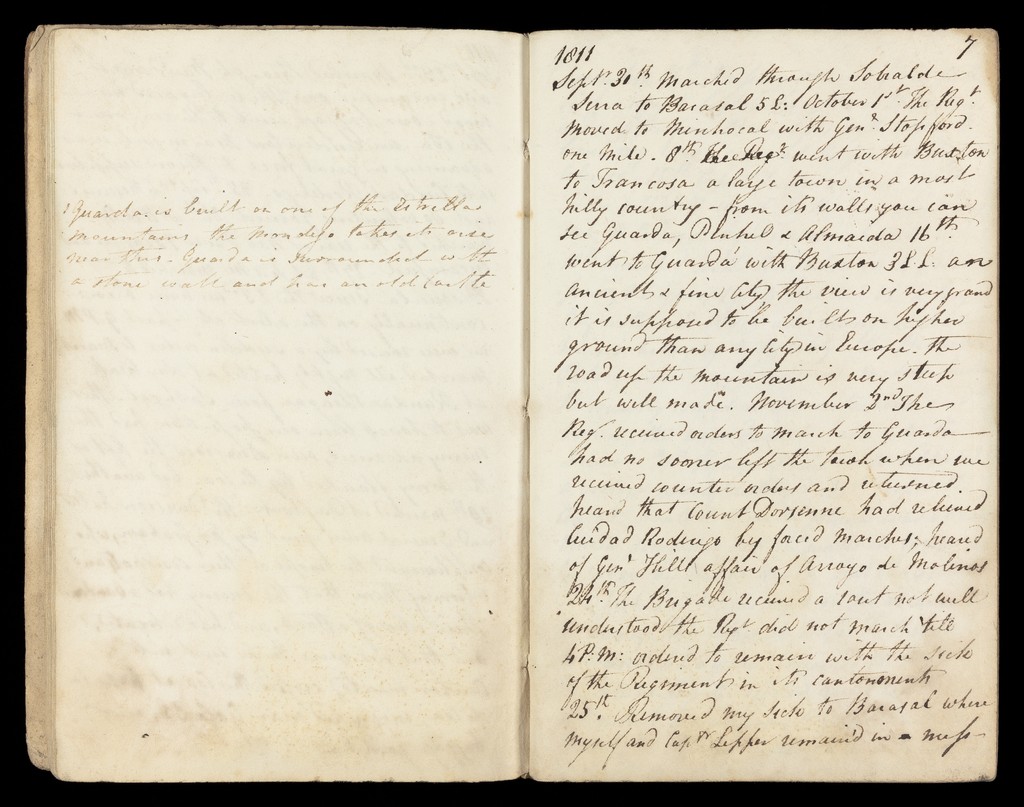 Guarda is built on one of the Estrella
mountains, the Mondego takes its rise
near this. Guarda is surrounded with
a stone wall and has an old Castle
7
1811
Sept.r 30th marched through Sobralde
Serra to Barasal 5 L: October 1st The Reg.t
moved to Minhocal with Gen.l Stopford.
one mile. 8th the Reg.t went with Buxton
to Francosa a large town in a most
hilly country - from its walls you can
see Guarda, Pinhel & Almaida 16th
went to Guarda with Buxton 3 LL. an
ancient & fine City the view is very grand
it is supposed to be built on higher
ground than any City in Europe. the
road up the mountain is very steep
but well made. November 2nd The
Reg.t received orders to march to Guarda
had no sooner left the town when we
received counter orders and returned.
heard that Count Dorsenne had relieved
Ciudad Rodrigo by forced marches, heard
of Gen.l Hills affair of Arroyo de Molinos
24th The Brigade received a rout not well
understood the Reg.t did not march till
4 P.M: ordered to remain with the sick
of the Regiment in its cantonments
25th Removed my sick to Barasal where
myself and Cap.tn Lepper remained in a mess